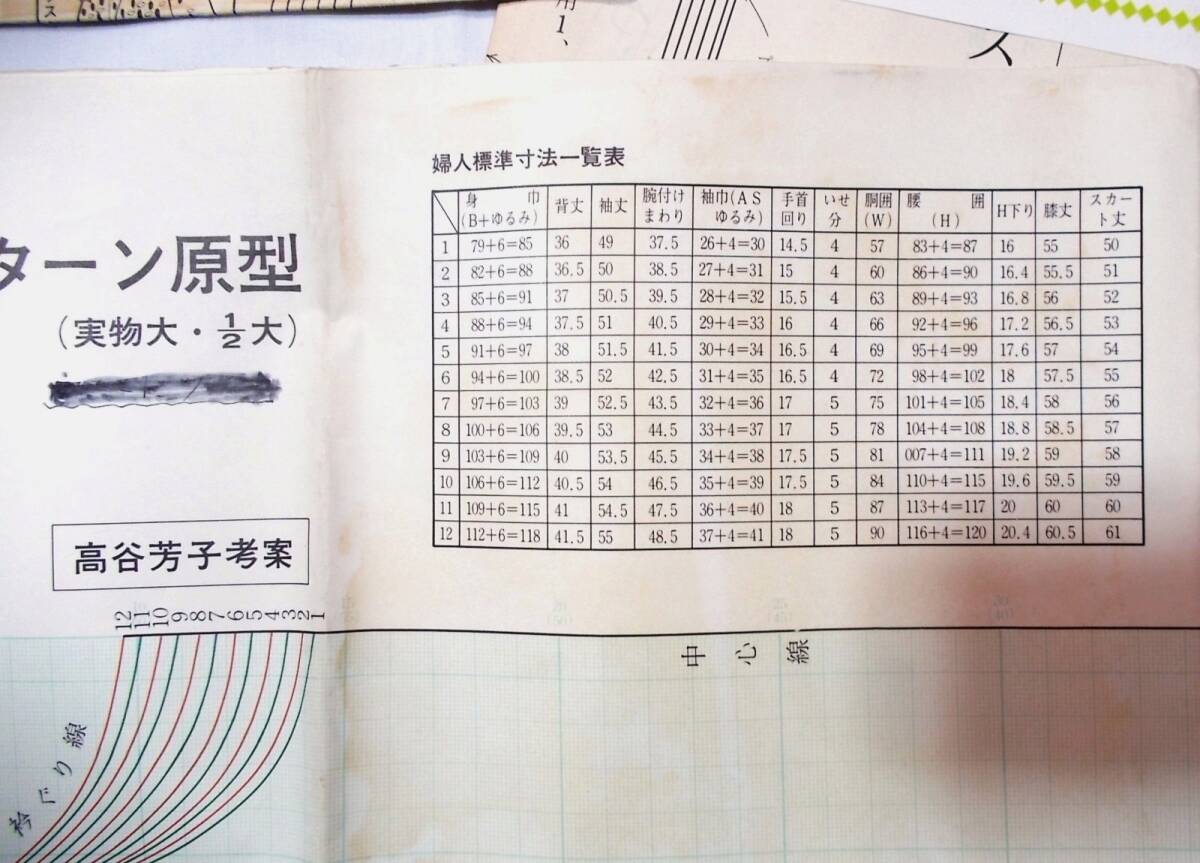 ス
用1、
ス
婦人標準寸法一覧表
身巾(B+ゆるみ) 背丈 袖丈 腕付けまわり 袖巾(ASゆるみ) 手首回り いせ分 胴囲(W) 腰囲(H) H下り 膝丈 スカート丈
1 79+6=85 36 49 37.5 26+4=30 14.5 4 57 83+4=87 16 55 50
2 82+6=88 36.5 50 38.5 27+4=31 15 4 60 86+4=90 16.4 55.5 51
3 85+6=91 37 50.5 39.5 28+4=32 15.5 4 63 89+4=93 16.8 56 52
4 88+6=94 37.5 51 40.5 29+4=33 16 4 66 92+4=96 17.2 56.5 53
5 91+6=97 38 51.5 41.5 30+4=34 16.5 4 69 95+4=99 17.6 57 54
6 94+6=100 38.5 52 42.5 31+4=35 16.5 4 72 98+4=102 18 57.5 55
7 97+6=103 39 52.5 43.5 32+4=36 17 5 75 101+4=105 18.4 58 56
8 100+6=106 39.5 53 44.5 33+4=37 17 5 78 104+4=108 18.8 58.5 57
9 103+6=109 40 53.5 45.5 34+4=38 17.5 5 81 007+4=111 19.2 59 58
10 106+6=112 40.5 54 46.5 35+4=39 17.5 5 84 110+4=115 19.6 59.5 59
11 109+6=115 41 54.5 47.5 36+4=40 18 5 87 113+4=117 20 60 60
12 112+6=118 41.5 55 48.5 37+4=41 18 5 90 116+4=120 20.4 60.5 61
ターン原型
(実物大・1/2大)
高谷芳子考案
12 11 10 9 8 7 6 5 4 3 2 1
中心線
衿ぐり線